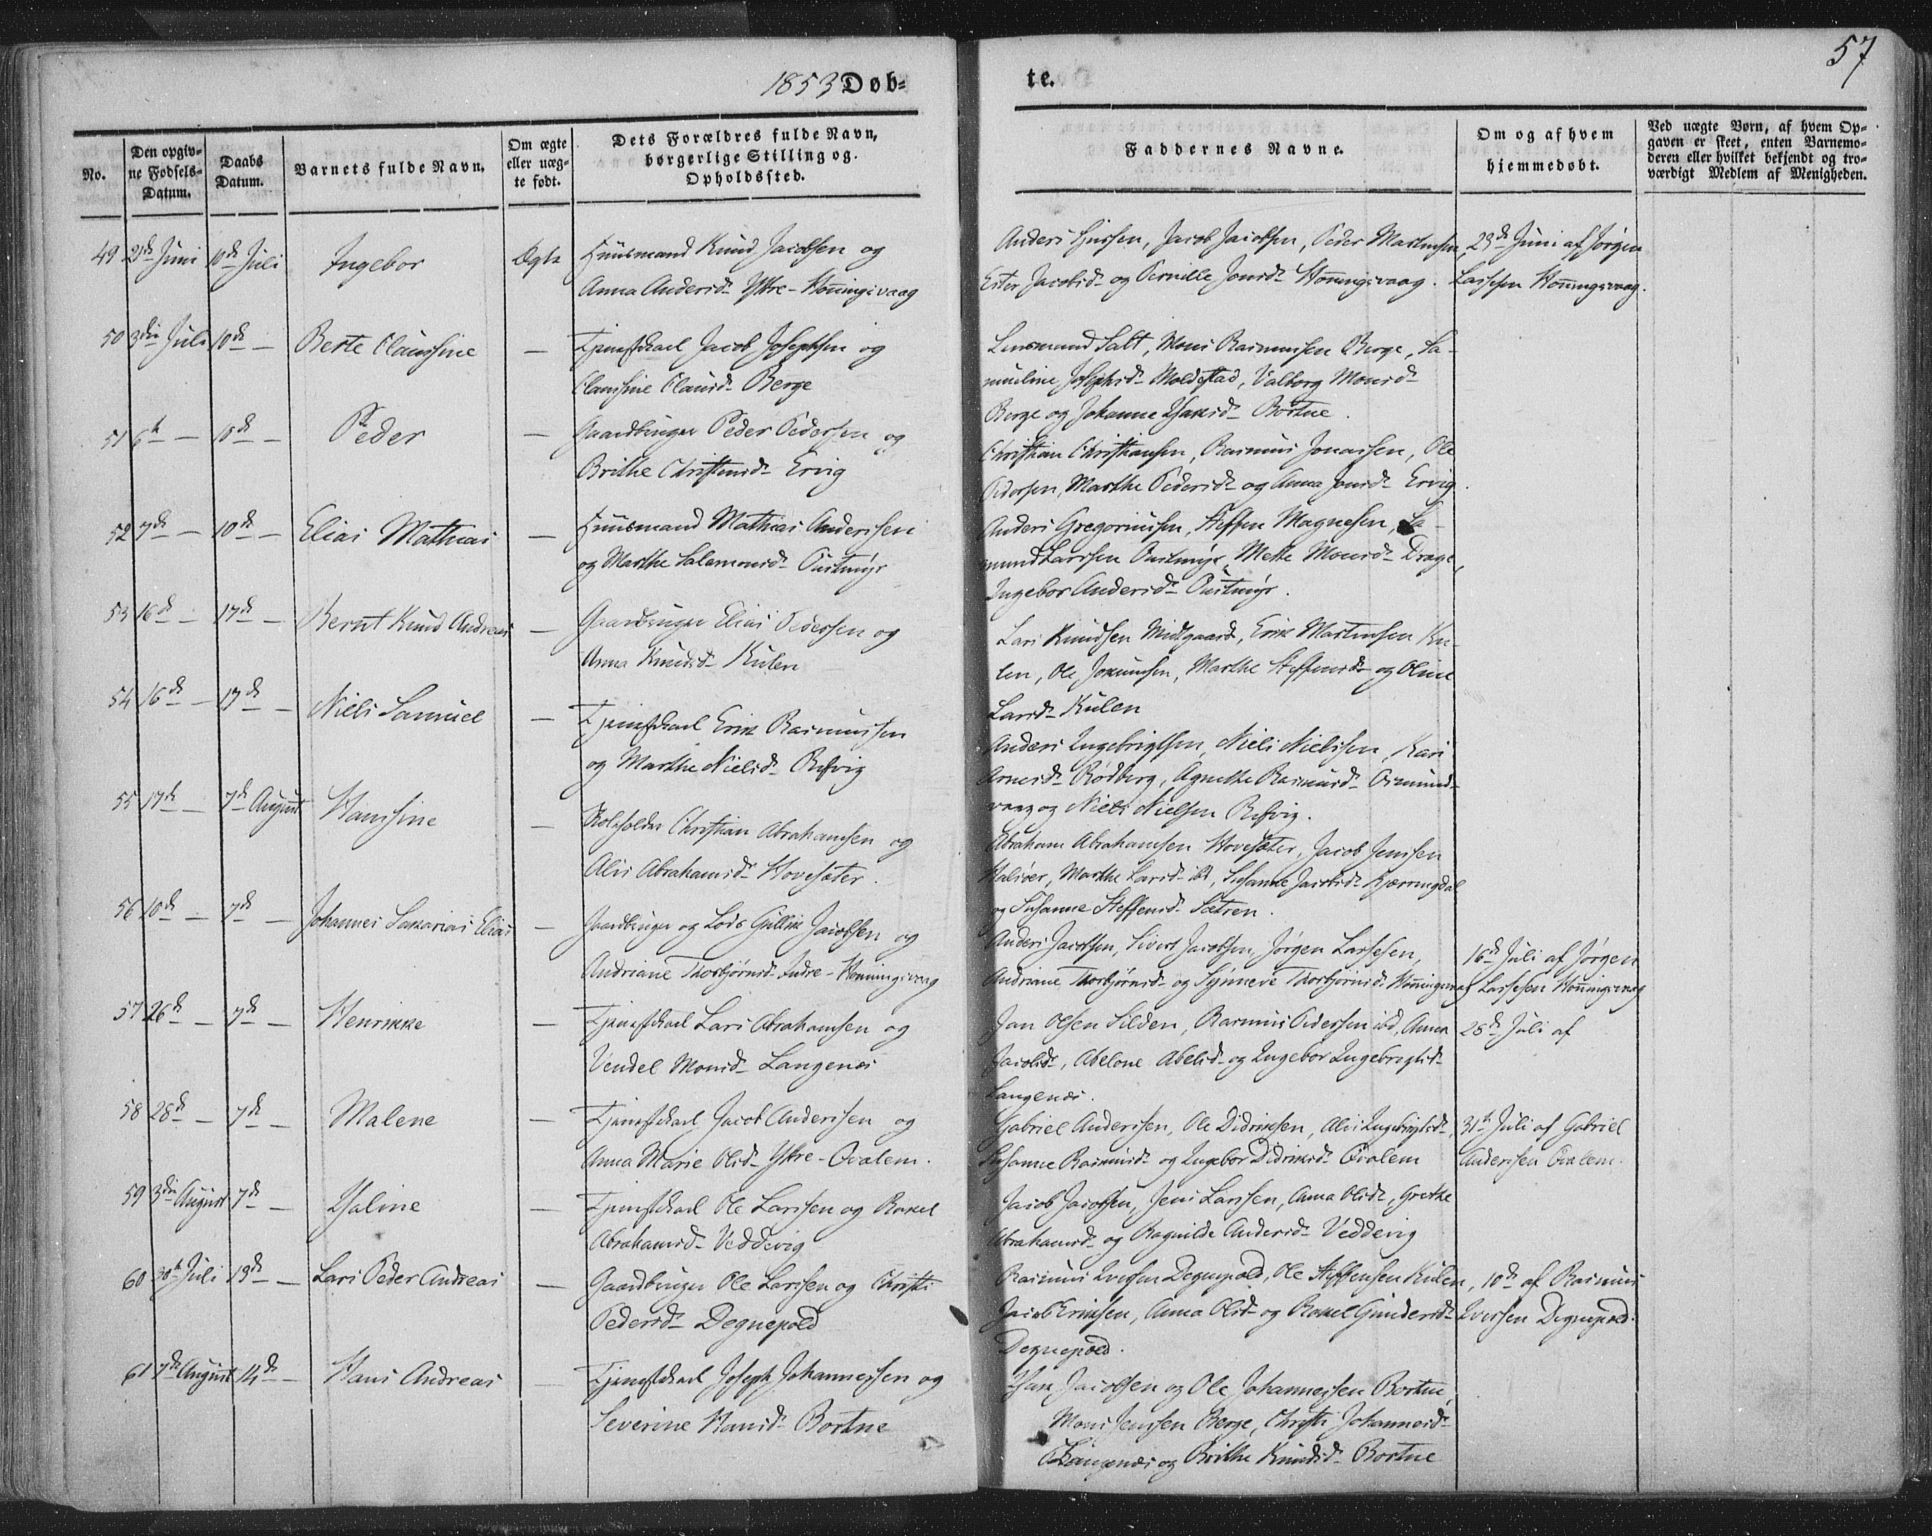 1853 Døb-
te.
57
No.
Den opgiv-
ne Fødsels-
Datum.
Daabs
Datum.
Barnets fulde Navn.
Om ægte
eller uæg-
te født.
Dets Forældres fulde Navn,
borgerlige Stilling og
Opholdssted.
Faddernes Navne.
Om og af hvem
hjemmedøbt.
Ved uægte Børn, af hvem Op-
gaven er skeet, enten Barnemo-
deren eller hvilket bekjendt og tro-
værdigt Medlem af Menigheden.
49 Juni 10de Juli Ingebor Ægte Huusmand Knud Jacobsen og
Anna Andersd. Ytre-Honningsvaag
Anders Jacob Jacobsen, Peder Martinsen,
Ester Jacobsd. og Pernille Jonsd. Honningsvaag.
23de Juni af Jørgen
Lassesen Honningsvaag.
50 3die Juli 10de — Berte Claussine — Tjenestkarl Jacob Josephsen og
Claussine Clausd. Berge
Lensmand Salt, Mons Rasmussen Berge, Sa-
muline Josephsd. Moldestad, Valborg Monsd.
Berge og Johanne Isaksd. Bortne.
51 6te — 10de — Peder — Gaardbruger Peder Pedersen og
Brithe Christensd. Ervig
Christian Christiansen, Rasmus Jonassen, Ole
Pedersen, Marthe Pedersd. og Anna Jonsd. Ervig.
52 7de — 10de — Elias Mathias — Huusmand Mathias Anderssen
og Marthe Salamonsd. Oustmyr
Anders Gregoriussen, Steffen Magnesen, Sa-
mund Larssen Oustmyr, Mette Monsd. Drage,
Ingebor Andersd. Oustmyr.
53 16de — 17de — Bernt Knud Andreas — Gaardbruger Elias Pedersen og
Anna Knudsd. Kulen
Lars Knudsen Midtgaard, Erik Martinsen Ku-
len, Ole Marthe Steffensd. og Oline
Larsd. Kulen
54 16de — 17de — Niels Samuel — Tjenestkarl Erik Rasmussen
og Marthe Nielsd. Refvig
Anders Ingebrigtsen, Niels Nielssen, Kari
Arnesd. Rødberg, Agnethe Rasmusd. Osmund-
vaag og Niels Nielsen Refvig.
55 17de — 7de August Hanssine — Christian Abrahamsen og
Alis Abrahamsd. Hovesæter.
Abraham Abrahamsen Hovesæter, Jacob Jenssen
Halsør, Marthe Larsd. ibd, Susanne Jacobsd. Kjærringdal
og Susanne Steffensd. Sætren.
56 10de — 7de — Johannes Sakarias Elias — Gaardbruger og Lods Gullik Jacobsen og
Andriane Thorbjørnsd. Indre-Honningsvaag
Anders Jacobsen, Sivert Jacobsen, Jørgen Lassesen,
Andriane Thorbjørnsd. og Synneve Thorbjørnsd. Honningsvaag
16de Juli af Jørgen
Lassesen Honningsvaag
57 26de — 7de — Henrikke — Tjenestkarl Lars Abrahamsen og
Vendel Monsd. Langenæs
Jan Olsen Silden, Rasmus Pedersen ibd, Anna
Jacobsd., Abelone Abelsd. og Ingebor Ingebrigtsd.
Langenæs.
28de Juli af
58 28de — 7de — Malene — Tjenestkarl Jacob Anderssen og
Anna Marie Olsd. Ytre-Qvalem.
Gabriel Anderssen, Ole Didriksen, Alis Ingebrigtsd.,
Susanne Rasmusd. og Ingebor Didriksd. Qvalem
31te Juli af Gabriel
Anderssen Qvalem.
59 3die August 7de — Isaline — Tjenestkarl Ole Larssen og Rakel
Abrahamsd. Veddevig
Jacob Jacobsen, Jens Larssen, Anna Olsd., Grethe
Abrahamsd. og Ragnilde Andersd. Veddevig
60 30te Juli 13de — Lars Peder Andreas — Gaardbruger Ole Larssen og Christi
Pedersd. Degnepold
Rasmus Iverssen Degnepold, Ole Steffensen Kulen,
Jacob Eriksen, Anna Olsd. og Rakel Gundersd.
Degnepold.
10de af Rasmus
Iverssen Degnepold.
61 7de August 14de — Hans Andreas — Tjenestkarl Joseph Johannessen og
Severine Hansd. Bortne
Isak Jacobsen og Ole Johannessen Bortne,
Mons Jenssen Berge, Christi Johannesd.
Langenæs og Brithe Knudsd. Bortne